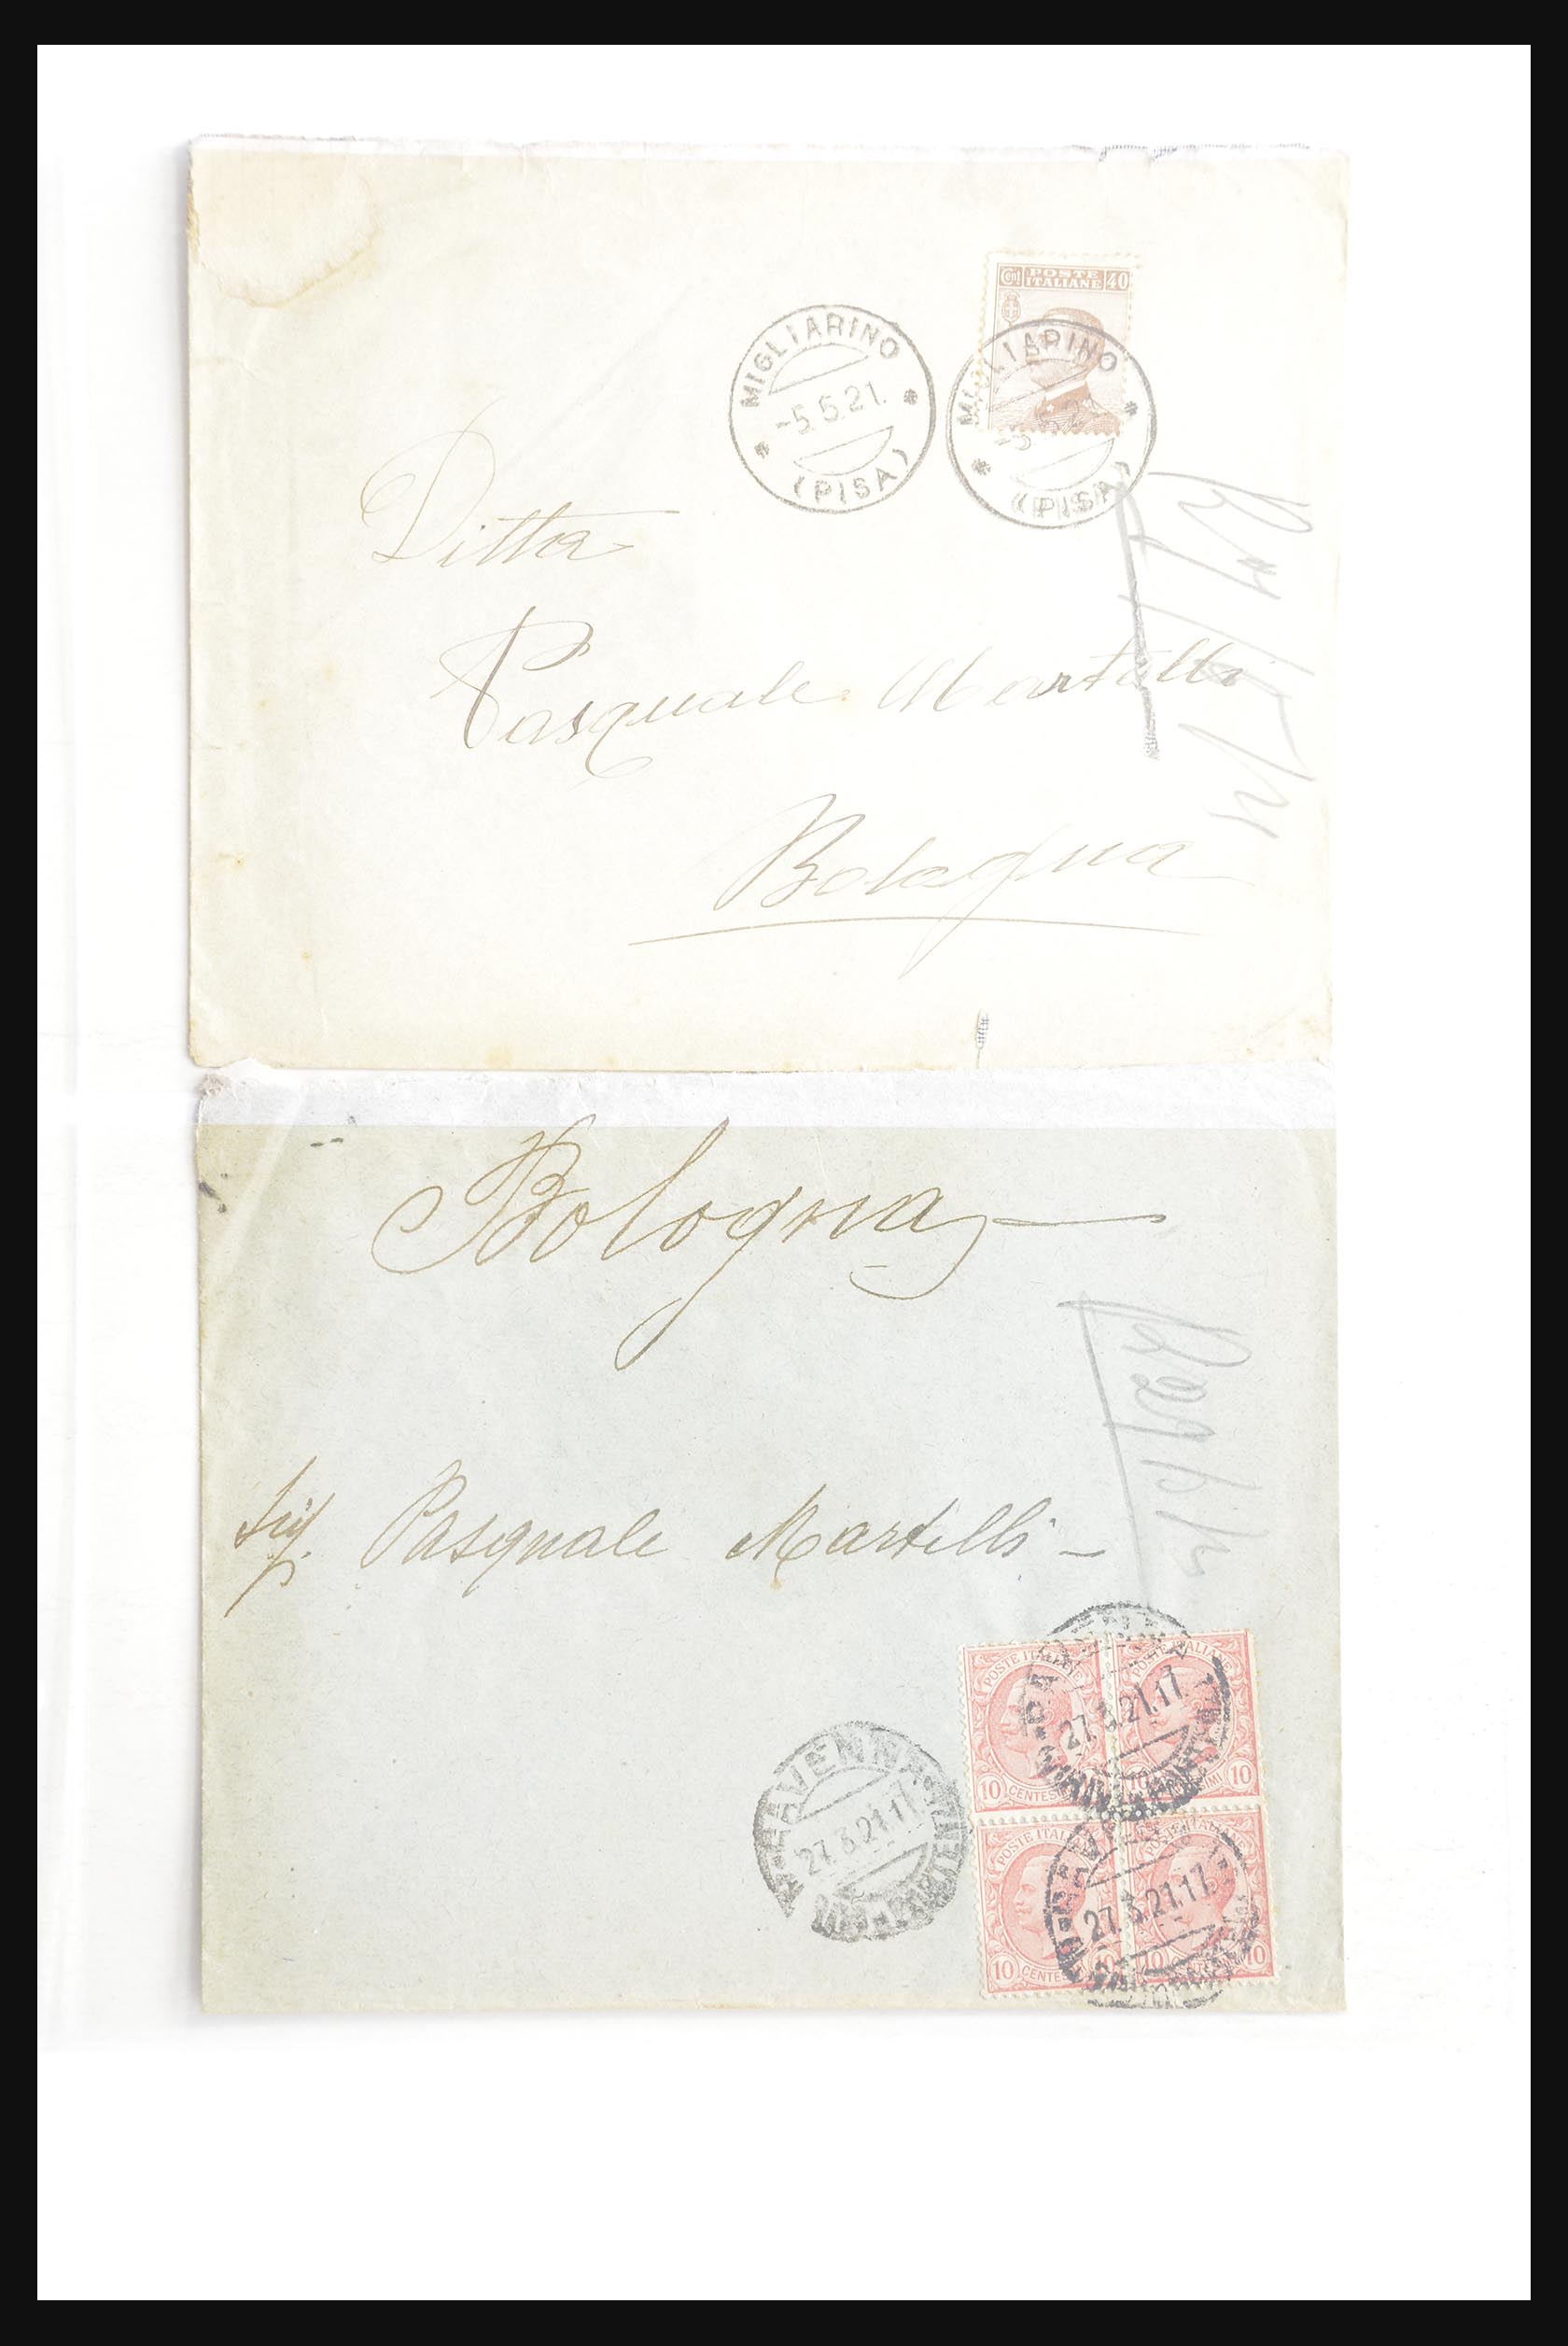 Cent POSTE ITALIANE 40
MIGLIARINO
-5.5.21.
(PISA)
MIGLIARINO
(PISA)
Ditta
Pasquale Martelli
Bologna
Bologna
Sig. Pasquale Martelli -
POSTE ITALIANE
10 CENTESIMI 10
27.3.21.17
27.3.21.17
27.3.21.17